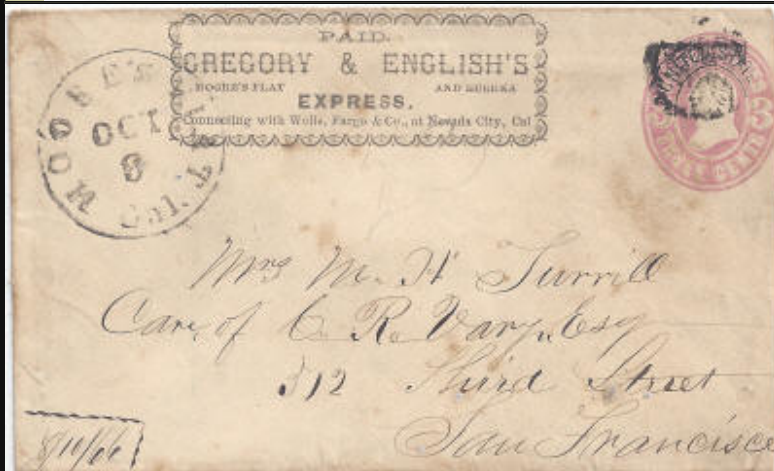 PAID.
GREGORY & ENGLISH'S
MOORE'S FLAT AND EUREKA
EXPRESS.
Connecting with Wells, Fargo & Co., at Nevada City, Cal
MOORE'S FLAT
OCT
8
Cal.
Mrs M. H Turrill
Care of C. R. Vary. Esq
312 Third Street
San Francisco
8/10/66